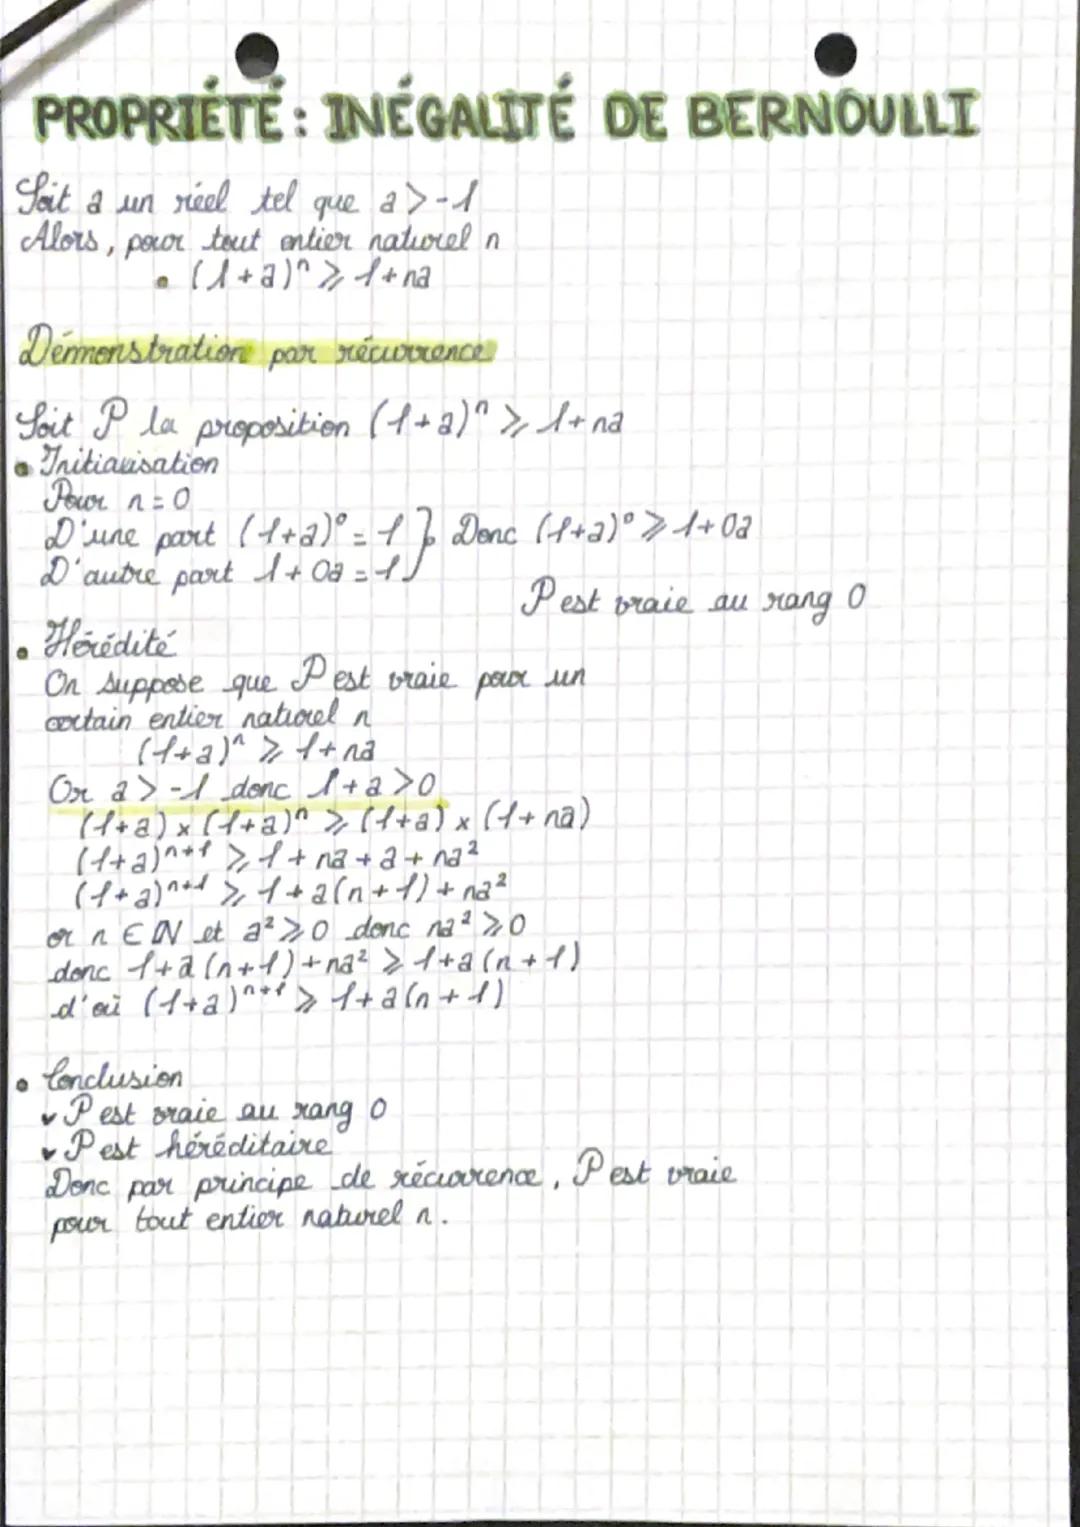 PROPRIÉTÉ : INÉGALITÉ DE BERNOULLI
Soit a un réel tel que a > -1
Alors, pour tout entier naturel n
• (1+a)ⁿ ⩾ 1+na
Démonstration par récurrence
Soit P la proposition (1+a)ⁿ ⩾ 1+na
• Initialisation
Pour n = 0
D'une part (1+a)⁰ = 1 } Donc (1+a)⁰ ⩾ 1+0a
D'autre part 1+0a = 1
P est vraie au rang 0
• Hérédité
On suppose que P est vraie pour un
certain entier naturel n
(1+a)ⁿ ⩾ 1+na
Or a > -1 donc 1+a > 0
(1+a) × (1+a)ⁿ ⩾ (1+a) × (1+na)
(1+a)ⁿ⁺¹ ⩾ 1 + na + a + na²
(1+a)ⁿ⁺¹ ⩾ 1 + a(n+1) + na²
or n ∈ ℕ et a² ⩾ 0 donc na² ⩾ 0
donc 1+a(n+1)+na² ⩾ 1+a(n+1)
d'où (1+a)ⁿ⁺¹ ⩾ 1+a(n+1)
• Conclusion
✓ P est vraie au rang 0
✓ P est héréditaire
Donc par principe de récurrence, P est vraie
pour tout entier naturel n.